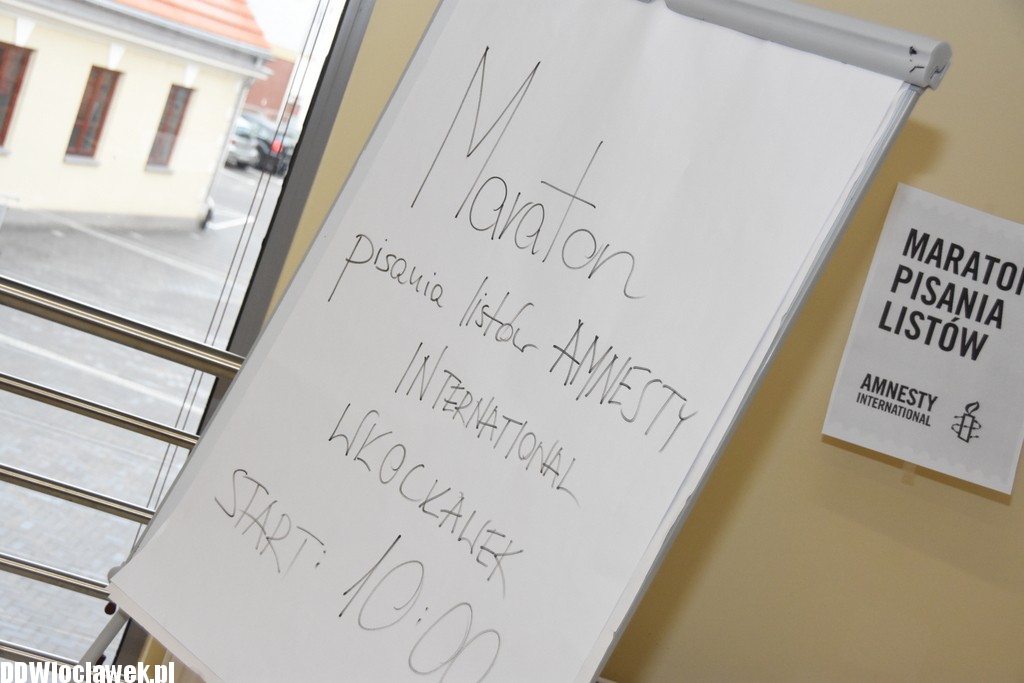 Maraton
pisania listów AMNESTY
INTERNATIONAL
WŁOCŁAWEK
START: 10:00
MARATON
PISANIA
LISTÓW
AMNESTY
INTERNATIONAL
DDWloclawek.pl